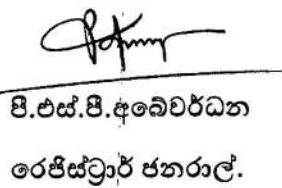 පී.එස්.පී.අබේවර්ධන
රෙජිස්ට්‍රාර් ජනරාල්.